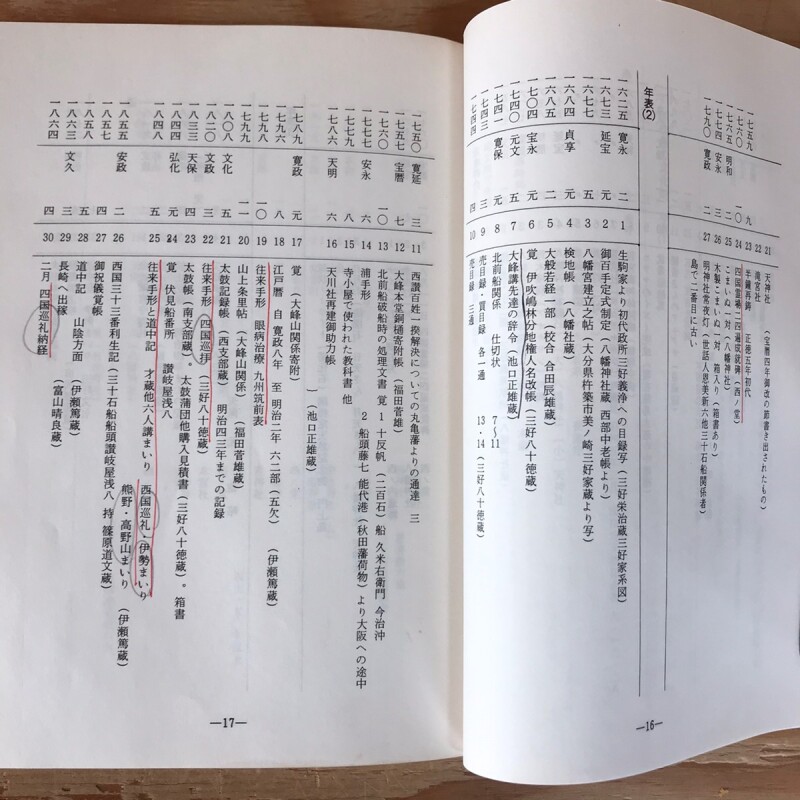 一七五九 九 21 天神社 (宝暦四年御改の節書き出されたもの)
一七六〇 22 滝宮社
一七六五 明和 二 23 半鐘再鋳 正徳五年初代
一七七四 安永 三 24 四国霊場二四遍成就碑 (西ノ堂)
一七九〇 寛政 二 25 こまいぬ一対 (八幡神社)
26 木製こまいぬ一対、箱入り (箱書あり)
27 明神社常夜灯 (世話人恩美新六他三十石船関係者)
島で二番目に古い
年表(2)
一六二五 寛永 二 1 生駒家より初代政所三好義浄への目録写 (三好栄治蔵三好家系図)
一六七三 延宝 元 2 御百手定式制定 (八幡神社蔵 西部中老帳より)
一六七七 五 3 八幡宮建立之帖 (大分県杵築市美ノ崎三好家蔵より写)
一六八四 貞享 元 4 検地帳 (八幡社蔵)
一六八五 二 5 大般若経一部 (校合 合田辰雄蔵)
一七〇四 宝永 元 6 覚 伊吹嶋林分地権人名改帳 (三好八十徳蔵)
一七四〇 元文 五 7 大峰講先達の辞令 (池口正雄蔵)
一七四一 寛保 元 8 北前船関係 仕切状 7〜11
一七四三 三 9 売目録・買目録 各一通 13・14 (三好八十徳蔵)
一七四四 四 10 売目録 三通
—16—
一七五〇 寛延 三 11 西讃百姓一揆解決についての丸亀藩よりの通達 三
一七五七 宝暦 七 12 大峰本堂銅樋寄附帳 (福田菅雄蔵)
一七六〇 一〇 13 北前船破船時の処理文書 覚 1 十反帆 (二百石) 船 久米右衛門 今治沖
2 船頭藤七 能代港 (秋田藩荷物) より大阪への途中
一七七七 安永 六 14 浦手形
一七七九 八 15 寺小屋で使われた教科書 他
一七八六 天明 六 16 天川社再建御助力帳
(池口正雄蔵)
一七八九 寛政 元 17 覚 (大峰山関係寄附)
一七九六 八 18 江戸暦 自 寛政八年 至 明治二年 六二部 (五欠) (伊瀬篤蔵)
一七九八 一〇 19 往来手形 眼病治療 九州筑前表
一七九九 一一 20 山上条里帖 (大峰山関係) (福田菅雄蔵)
一八〇八 文化 五 21 太鼓記録帳 (西支部蔵) 明治四三年までの記録
一八二〇 文政 三 22 往来手形 四国巡拝 (三好八十徳蔵)
一八三三 天保 四 23 太鼓帳 (南支部蔵)。太鼓蒲団他購入見積書 (三好八十徳蔵)。箱書
一八四四 弘化 元 24 覚 伏見船番所 讃岐屋浅八
一八四八 五 25 往来手形と道中記 才蔵他六人講まいり 西国巡礼・伊勢まいり
熊野・高野山まいり (伊瀬篤蔵)
一八五五 安政 二 26 西国三十三番利生記 (三十石船船頭讃岐屋浅八 持 篠原道文蔵)
一八五七 四 27 御祝儀覚帳
一八五八 28 道中記 山陰方面 (伊瀬篤蔵)
一八六三 文久 三 29 長崎へ出稼 (富山晴良蔵)
一八六四 四 30 二月 四国巡礼納経
—17—